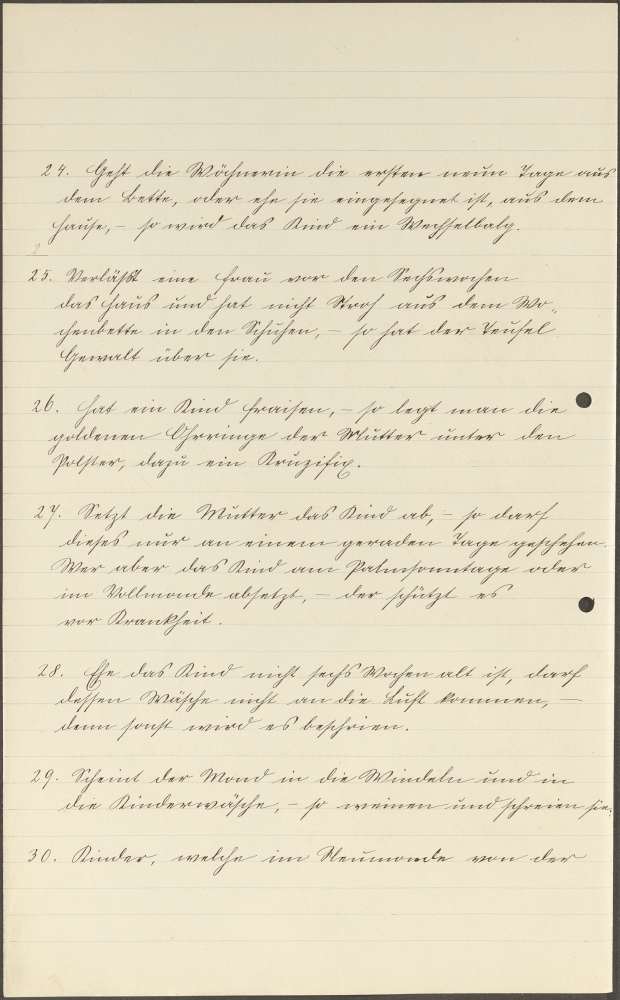 24. Geht die Wöchnerin die ersten neun Tage aus
dem Bette, oder ehe sie eingesegnet ist, aus dem
Hause, – so wird das Kind ein Wechselbalg.
25. Verläßt eine Frau vor den Sechswochen
das Haus und hat nicht Stroh aus dem Wo-
chenbette in den Schuhen, – so hat der Teufel
Gewalt über sie.
26. Hat ein Kind Fraisen, – so legt man die
goldenen Ohrringe der Mutter unter den
Polster, dazu ein Kruzifix.
27. Setzt die Mutter das Kind ab, – so darf
dieses nur an einem geraden Tage geschehen.
Wer aber das Kind am Palmsonntage oder
im Vollmonde absetzt, – der schützt es
vor Krankheit.
28. Ehe das Kind nicht sechs Wochen alt ist, darf
dessen Wäsche nicht an die Luft kommen, –
denn sonst wird es beschrien.
29. Scheint der Mond in die Windeln und in
die Kinderwäsche, – so weinen und schreien sie.
30. Kinder, welche im Neumonde von der